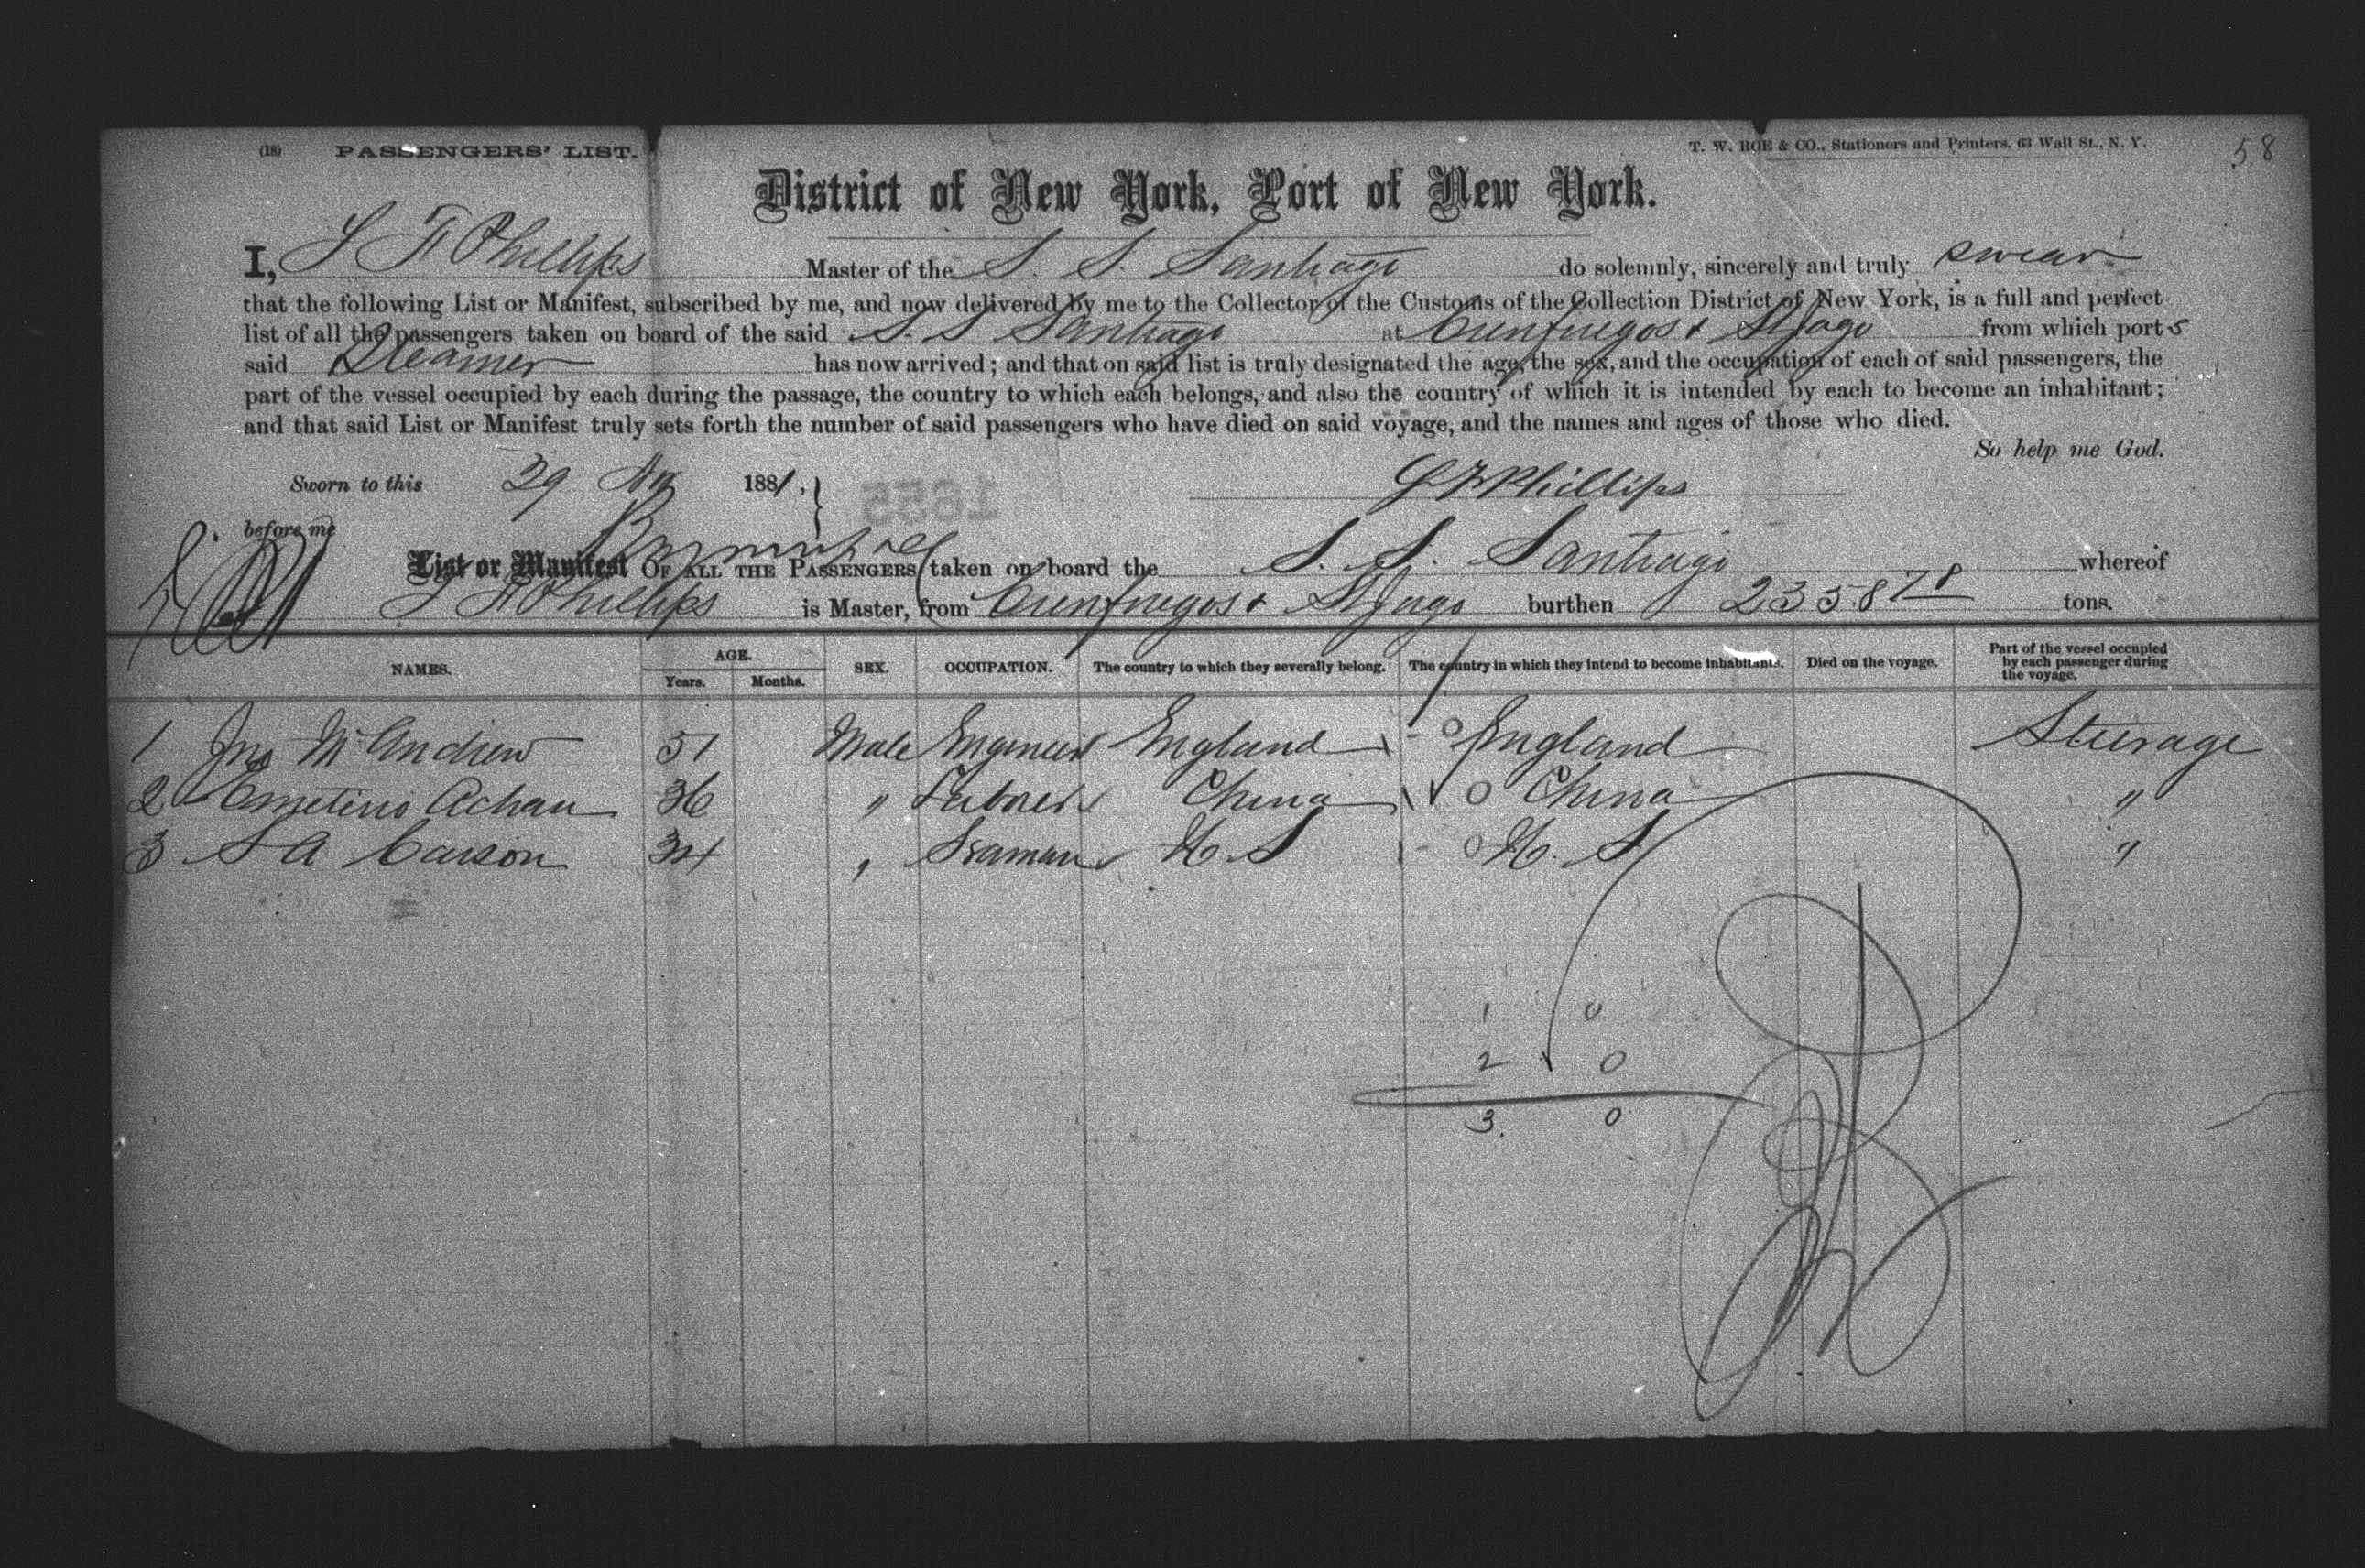 (18) PASSENGERS' LIST.
T. W. ROE & CO., Stationers and Printers, 63 Wall St., N. Y.
58
District of New York, Port of New York.
I, L F Phillips Master of the S. S. Santiago do solemnly, sincerely and truly swear
that the following List or Manifest, subscribed by me, and now delivered by me to the Collector of the Customs of the Collection District of New York, is a full and perfect
list of all the passengers taken on board of the said S. S Santiago at Cienfuegos & St Jago from which ports
said Steamer has now arrived; and that on said list is truly designated the age, the sex, and the occupation of each of said passengers, the
part of the vessel occupied by each during the passage, the country to which each belongs, and also the country of which it is intended by each to become an inhabitant;
and that said List or Manifest truly sets forth the number of said passengers who have died on said voyage, and the names and ages of those who died.
So help me God.
Sworn to this 29 1881,
1655
L F Phillips
before me
List or Manifest OF ALL THE PASSENGERS taken on board the S. S. Santiago whereof
L F Phillips is Master, from Cienfuegos & St Jago burthen 2358 78 tons.
NAMES. AGE. Years. Months. SEX. OCCUPATION. The country to which they severally belong. The country in which they intend to become inhabitants. Died on the voyage. Part of the vessel occupied by each passenger during the voyage.
1 Jno McAndrew 51 Male Engineer England England Steerage
2 Emeterio Achau 36 " Laborer China China "
3 S A Carson 34 " Seaman U. S U. S "
1 0
2 0
3 0